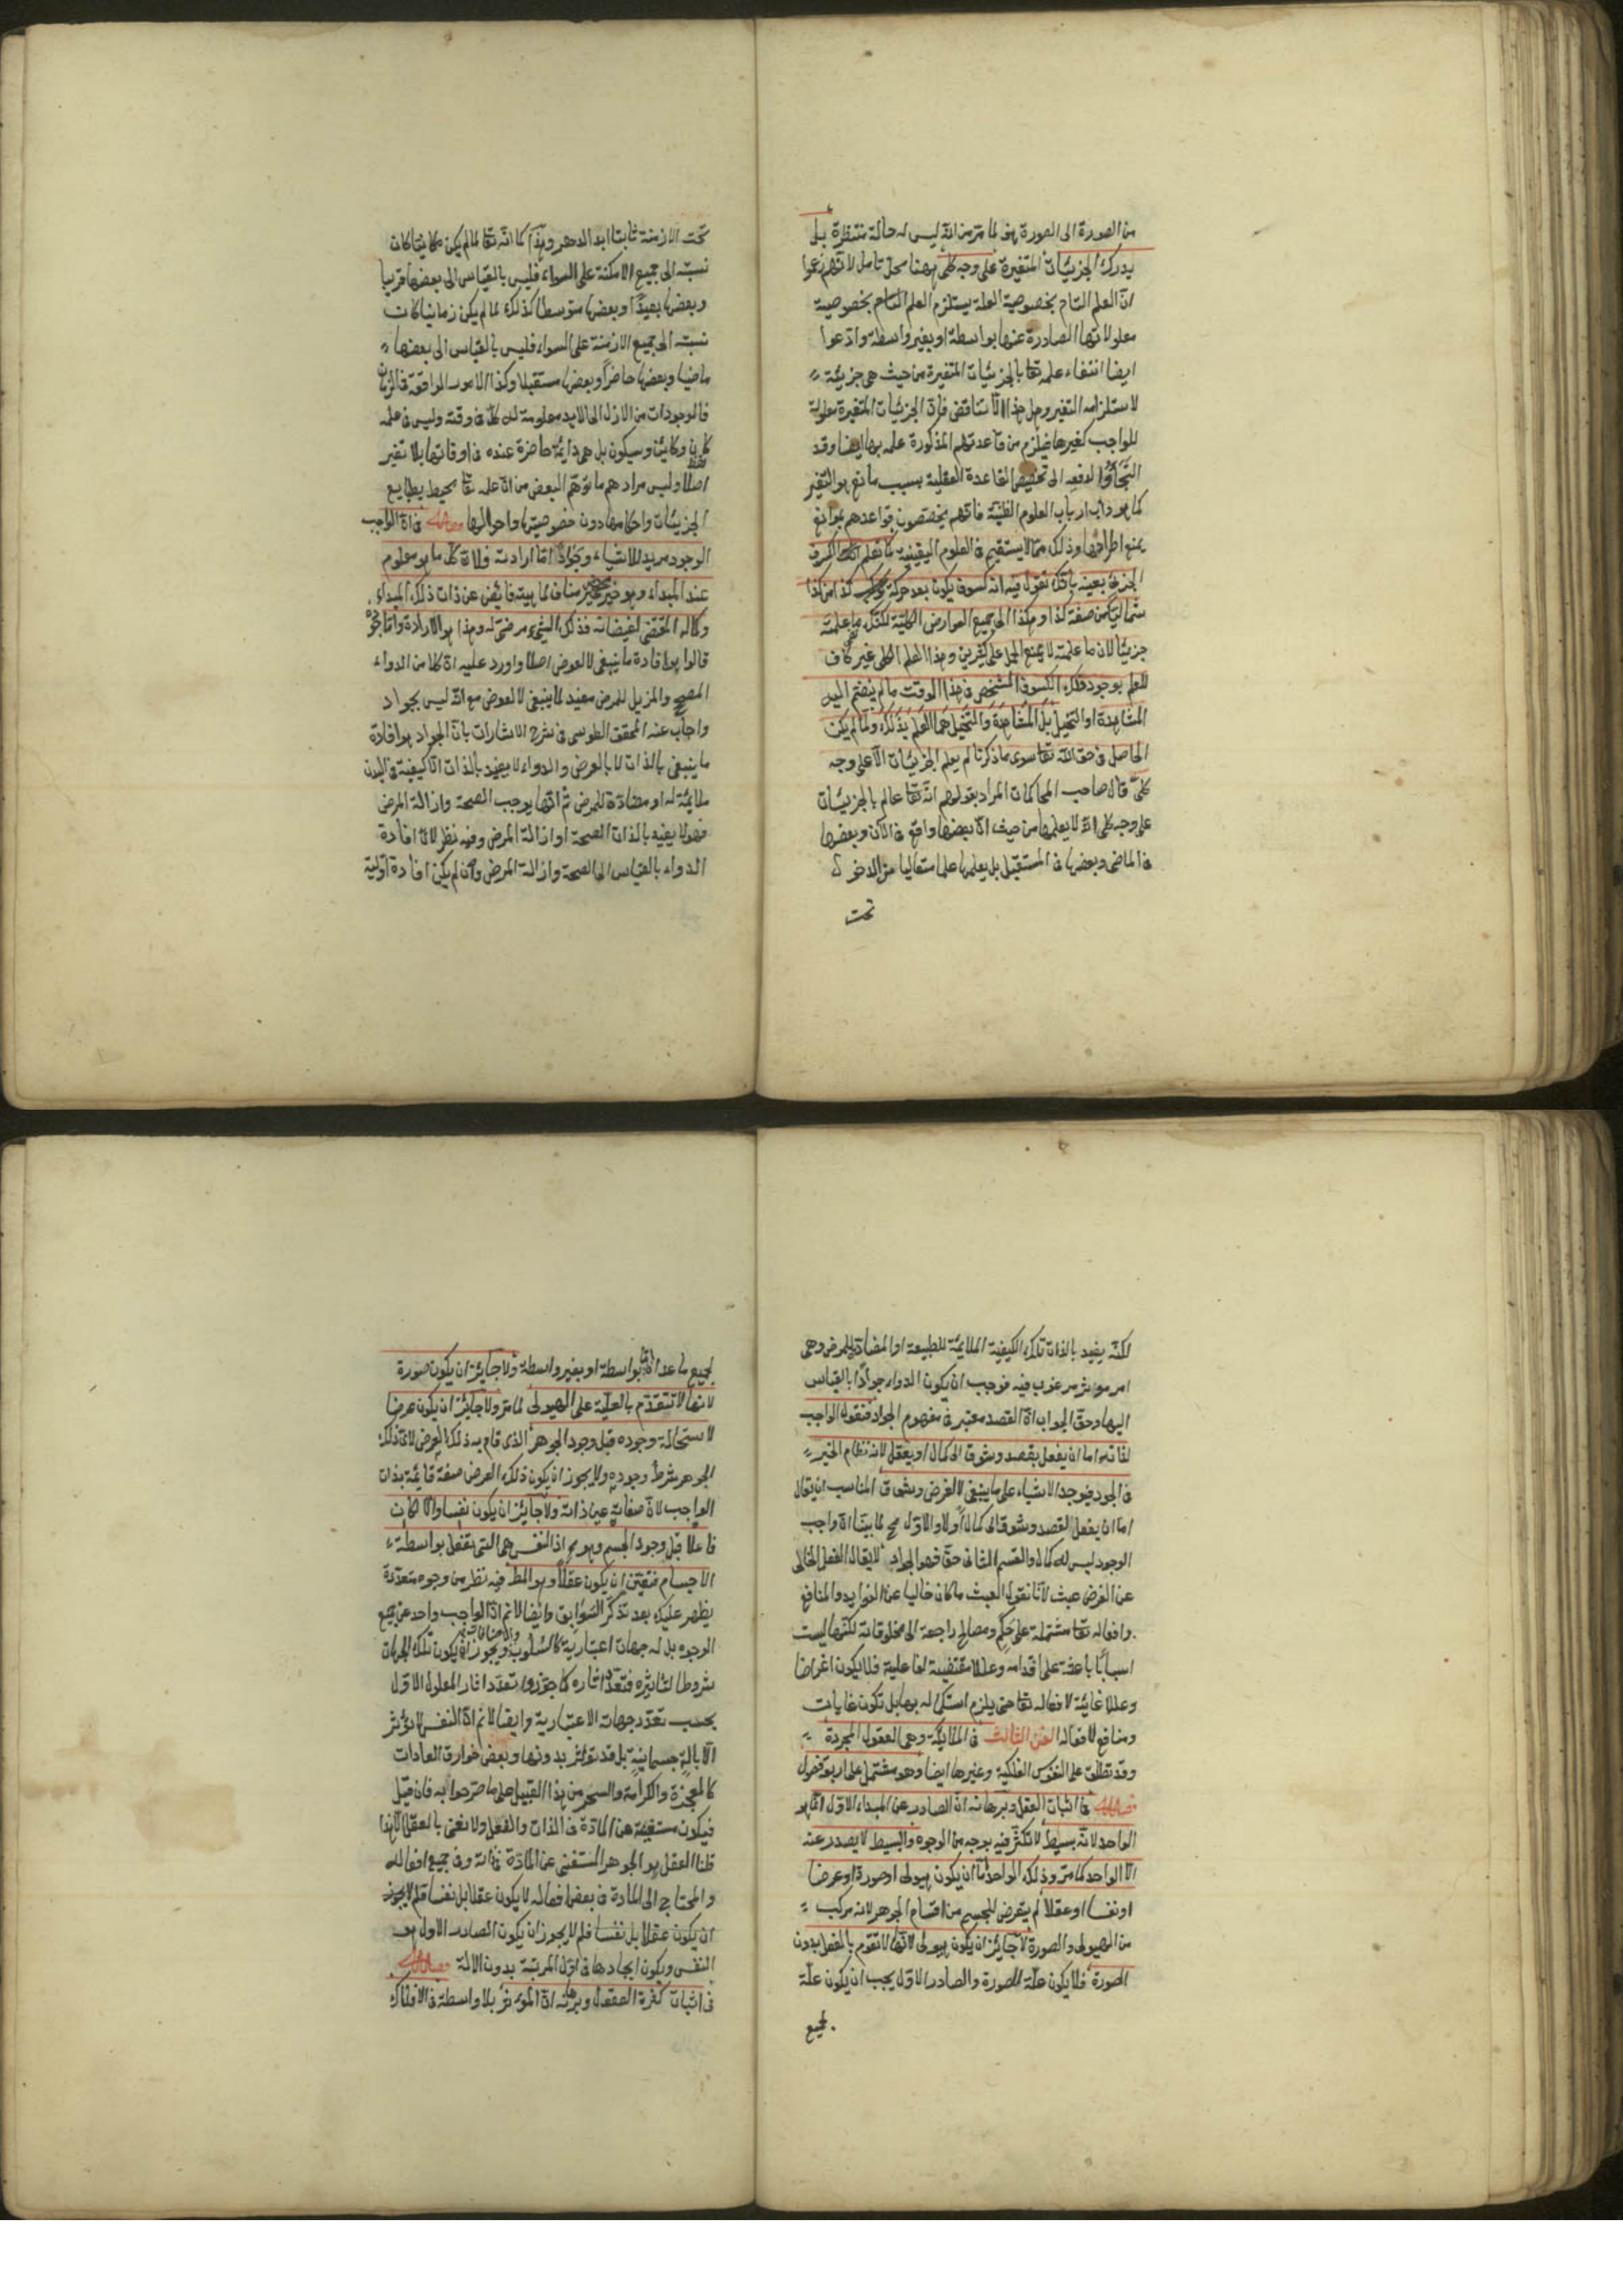 من الصورة الى الصورة هف لما مر من انه ليس له حالة منتظرة بل
يدرك الجزئيات المتغيرة على وجه كلى ههنا محل تامل لانهم زعموا
ان العلم التام بخصوصية العلة يستلزم العلم التام بخصوصية
معلولاتها الصادرة عنها بواسطة او بغير واسطة وادعوا
ايضا انتفاء علمه تعا بالجزئيات المتغيرة من حيث هى جزئية
لاستلزامه التغير وهل هذا الا تناقض فان الجزئيات المتغيرة معلولة
للواجب كغيرها فيلزم من قاعدتهم المذكورة علمه بها ايضا وقد
التجأوا لدفعه الى تخصيص القاعدة العقلية بسبب مانع هو التغير
كما هو داب ارباب العلوم الظنية فانهم يخصصون قواعدهم بموانع
يمنع اطرادها وذلك مما لا يستقيم فى العلوم اليقينية كما تعلم الكسوف
الجزئى بعينه بانك تقول فيه انه كسوف يكون بعد حركة كذا من كذا
شماليا من صفة كذا وهكذا الى جميع العوارض الكلية لكنك ما علمته
جزئيا لان ما علمته لا يمنع الحمل على كثيرين وهذا العلم الكلى غير كاف
للعلم بوجود ذلك الكسوف المشخص فى هذا الوقت ما لم ينضم اليه
المشاهدة او التخيل بل المشاهدة والتخيل هما العلم بذلك ولما لم يكن
الحاصل فى حق الله تعا سوى ما ذكرنا لم يعلم الجزئيات الا على وجه
كلى قال صاحب المحاكمات المراد بقولهم انه تعا عالم بالجزئيات
على وجه كلى انه لا يعلمها من حيث ان بعضها واقع فى الآن وبعضها
فى الماضى وبعضها فى المستقبل بل يعلمها علما متعاليا عن الدخول
تحت
تحت الازمنة ثابتا ابد الدهر وهذا كما انه تعا لما لم يكن مكانيا كان
نسبته الى جميع الامكنة على السواء فليس بالقياس الى بعضها قريبا
وبعضها بعيدا وبعضها متوسطا كذلك لما لم يكن زمانيا كانت
نسبته الى جميع الازمنة على السواء فليس بالقياس الى بعضها
ماضيا وبعضها حاضرا وبعضها مستقبلا وكذا الامور الواقعة فى الزمان
فالموجودات من الازل الى الابد معلومة له كل فى وقته وليس فى علمه
كان وكائن وسيكون بل هى دائمة حاضرة عنده فى اوقاتها بلا تغير
اصلا وليس مرادهم ما توهم البعض من ان علمه تعا محيط بطبايع
الجزئيات واحكامها دون خصوصيتها واحوالها فصل فى ان الواجب
الوجود مريد للاشياء وجواد اما ارادته فلان كل ما هو معلوم
عند المبداء وهو خير غير مناف لماهيته فائض عن ذات ذلك المبداء
وكماله المقتضى لفيضانه فذلك الشىء مرضى له وهذا هو الارادة واما جوده
قالوا هو افادة ما ينبغى لا لعوض اصلا واورد عليه ان كلا من الدواء
المصحح والمزيل للمرض مفيد لما ينبغى لا لعوض مع انه ليس بجواد
واجاب عنه المحقق الطوسى فى شرح الاشارات بان الجواد هو افادة
ما ينبغى بالذات لا بالعرض والدواء لا يفيد بالذات الا كيفية فى البدن
ملائمة له او مضادة للمرض ثم انها يوجب الصحة وازالة المرض
فهو لا يفيد بالذات الصحة او ازالة المرض وفيه نظر لان افادة
الدواء بالقياس الى الصحة وازالة المرض وان لم يكن افادة اولية
لكنه يفيد بالذات تلك الكيفية الملائمة للطبيعة او المضادة للمرض وهى
امر موثر مرغوب فيه فوجب ان يكون الدواء جوادا بالقياس
اليها وحق الجواب ان القصد معتبر فى مفهوم الجواد فنقول الواجب
لذاته اما ان يفعل بقصد وشوق الى كمال او يفعل لانه نظام الخير
فى الجود فيوجد الاشياء على ما ينبغى لا لغرض وشوق المناسب ان يقال
اما ان يفعل لقصد وشوق الى كمال اولا والاول مح لما بينا ان واجب
الوجود ليس له كمال والقسم الثانى حق فهو الجواد لا يقال الفعل الخالى
عن الغرض عبث لانا نقول العبث ما كان خاليا عن الفوايد والمنافع
وافعاله تعا مشتملة على حكم ومصالح راجعة الى مخلوقاته لكنها ليست
اسبابا باعثة على اقدامه وعللا مقتضية لفاعلية فلا يكون اغراضا
وعللا غائية لافعاله تعا حتى يلزم استكماله بها بل تكون غايات
ومنافع لافعاله الفن الثالث فى الملائكة وهى العقول المجردة
وقد تطلق على النفوس الفلكية وغيرها ايضا وهو مشتمل على اربعة فصول
فصل فى اثبات العقل وبرهانه ان الصادر عن المبداء الاول انما هو
الواحد لانه بسيط لا تكثر فيه بوجه من الوجوه والبسيط لا يصدر عنه
الا الواحد كما مر وذلك الواحد اما ان يكون هيولى او صورة او عرضا
او نفسا او عقلا لم يتعرض للجسم من اقسام الجوهر لانه مركب
من الهيولى والصورة لا جائز ان يكون هيولى لانها لا تقوم بالفعل بدون
الصورة فلا يكون علة للصورة والصادر الاول يجب ان يكون علة
لجميع
لجميع ما عداه بواسطة او بغير واسطة ولا جائز ان يكون صورة
لانها لا تتقدم بالعلية على الهيولى لما مر ولا جائز ان يكون عرضا
لاستحالة وجوده قبل وجود الجوهر الذى قام به ذلك العرض لان ذلك
الجوهر شرط وجوده ولا يجوز ان يكون ذلك العرض صفة قائمة بذات
الواجب لان صفاته عين ذاته ولا جائز ان يكون نفسا والا لكانت
فاعلا قبل وجود الجسم وهو مح اذ النفس هى التى تفعل بواسطة
الاجسام فتعين ان يكون عقلا وهو المط فيه نظر من وجوه متعددة
يظهر عليك بعد تذكر السوابق وايضا لانم ان الواجب واحد عن جميع
الوجوه بل له جهات اعتبارية كالسلوب ويجوز ان يكون تلك الجهات
شروطا لتاثيره فتعدد اثاره كما جوزوا تعدد اثار المعلول الاول
بحسب تعدد جهات الاعتبارية وايضا لانم ان النفس لا تؤثر
الا بالة جسمانية بل قد تؤثر بدونها وبعض خوارق العادات
كالمعجزة والكرامة والسحر من هذا القبيل على ما صرحوا به فان قيل
فيكون مستغنية عن المادة فى الذات والفعل ولا نعنى بالعقل الا هذا
قلنا العقل هو الجوهر المستغنى عن المادة فى ذاته وفى جميع افعاله
والمحتاج الى المادة فى بعض افعاله لا يكون عقلا بل نفسا فلم لا يجوز
ان يكون عقلا بل نفسا فلم لا يجوز ان يكون الصادر الاول هو
النفس ويكون ايجادها فى اول المرتبة بدون الالة فصل
فى اثبات كثرة العقول وبرهانه ان الموثر بلا واسطة فى الافلاك